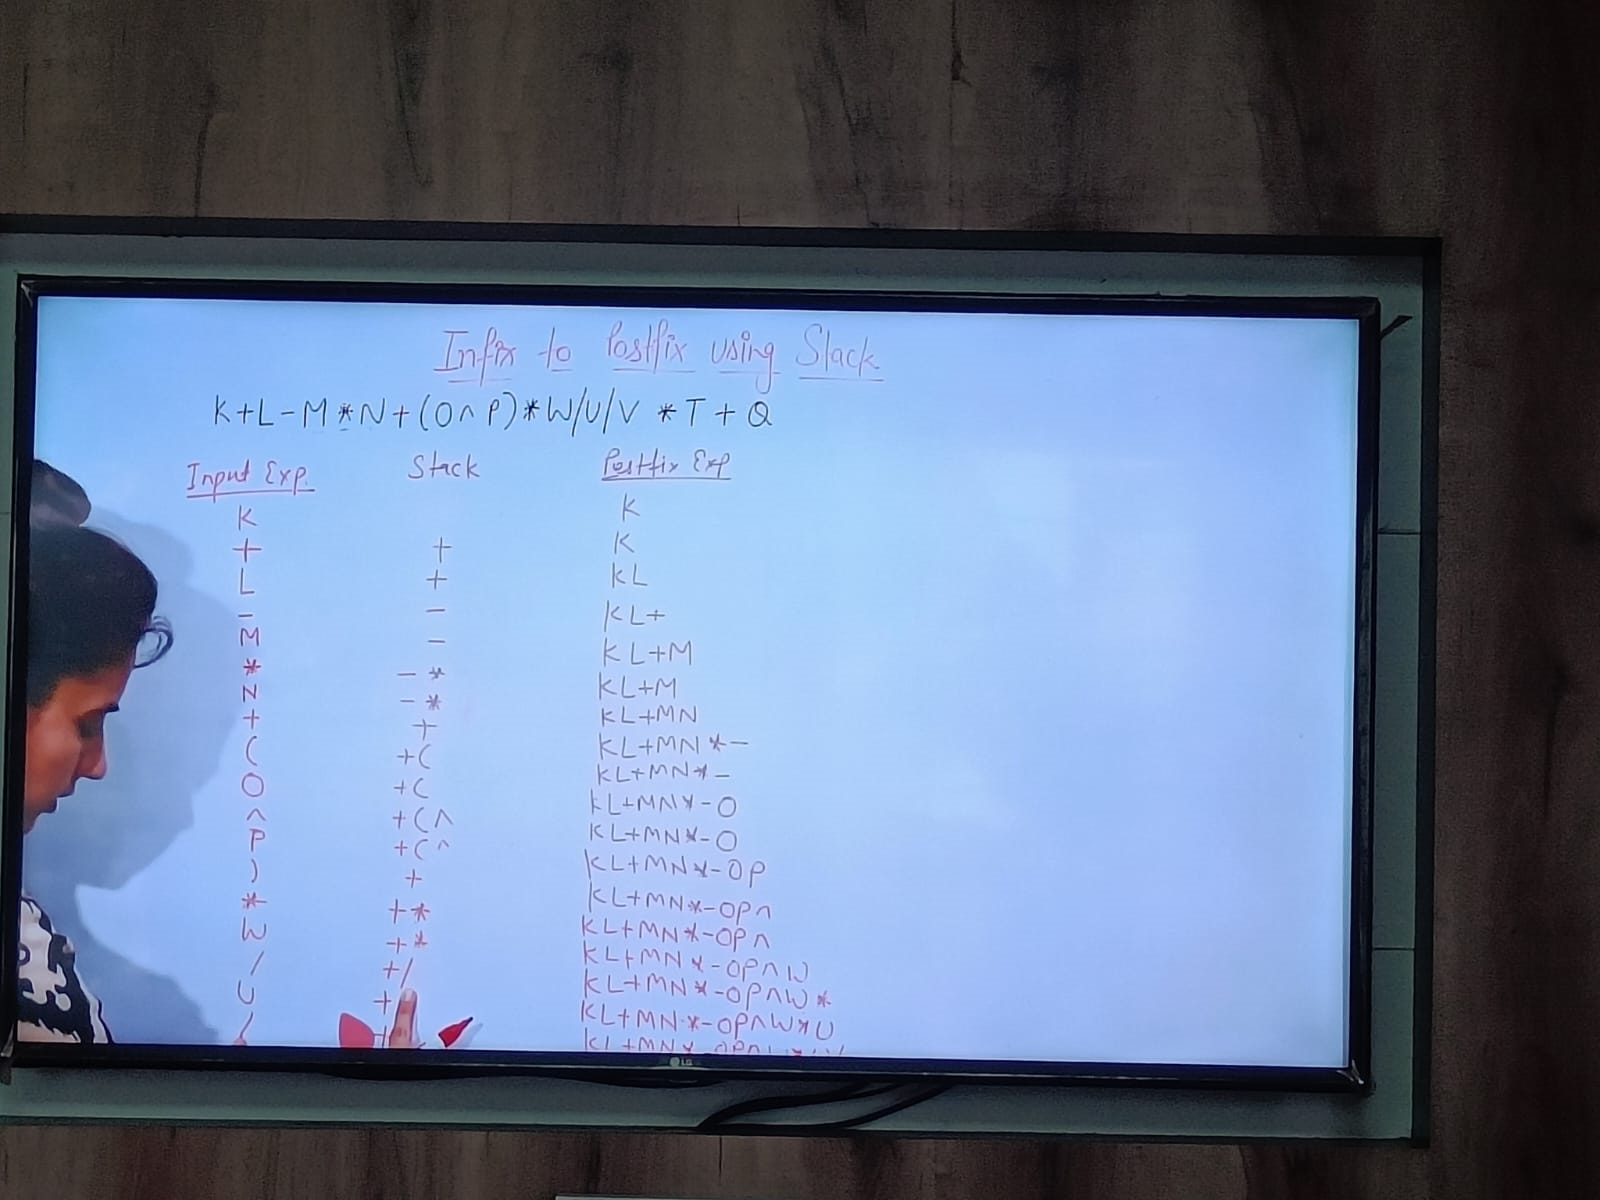 Infix to Postfix using Stack
K+L-M*N+(O^P)*W/U/V*T+Q
Input Exp. Stack Postfix Exp
K K
+ + K
L + KL
- - KL+
M - KL+M
* -* KL+M
N -* KL+MN
+ + KL+MN*-
( +( KL+MN*-
O +( KL+MN*-O
^ +(^ KL+MN*-O
P +(^ KL+MN*-OP
) + KL+MN*-OP^
* +* KL+MN*-OP^
W +* KL+MN*-OP^W
/ +/ KL+MN*-OP^W*
U + KL+MN*-OP^W*U
/
LG